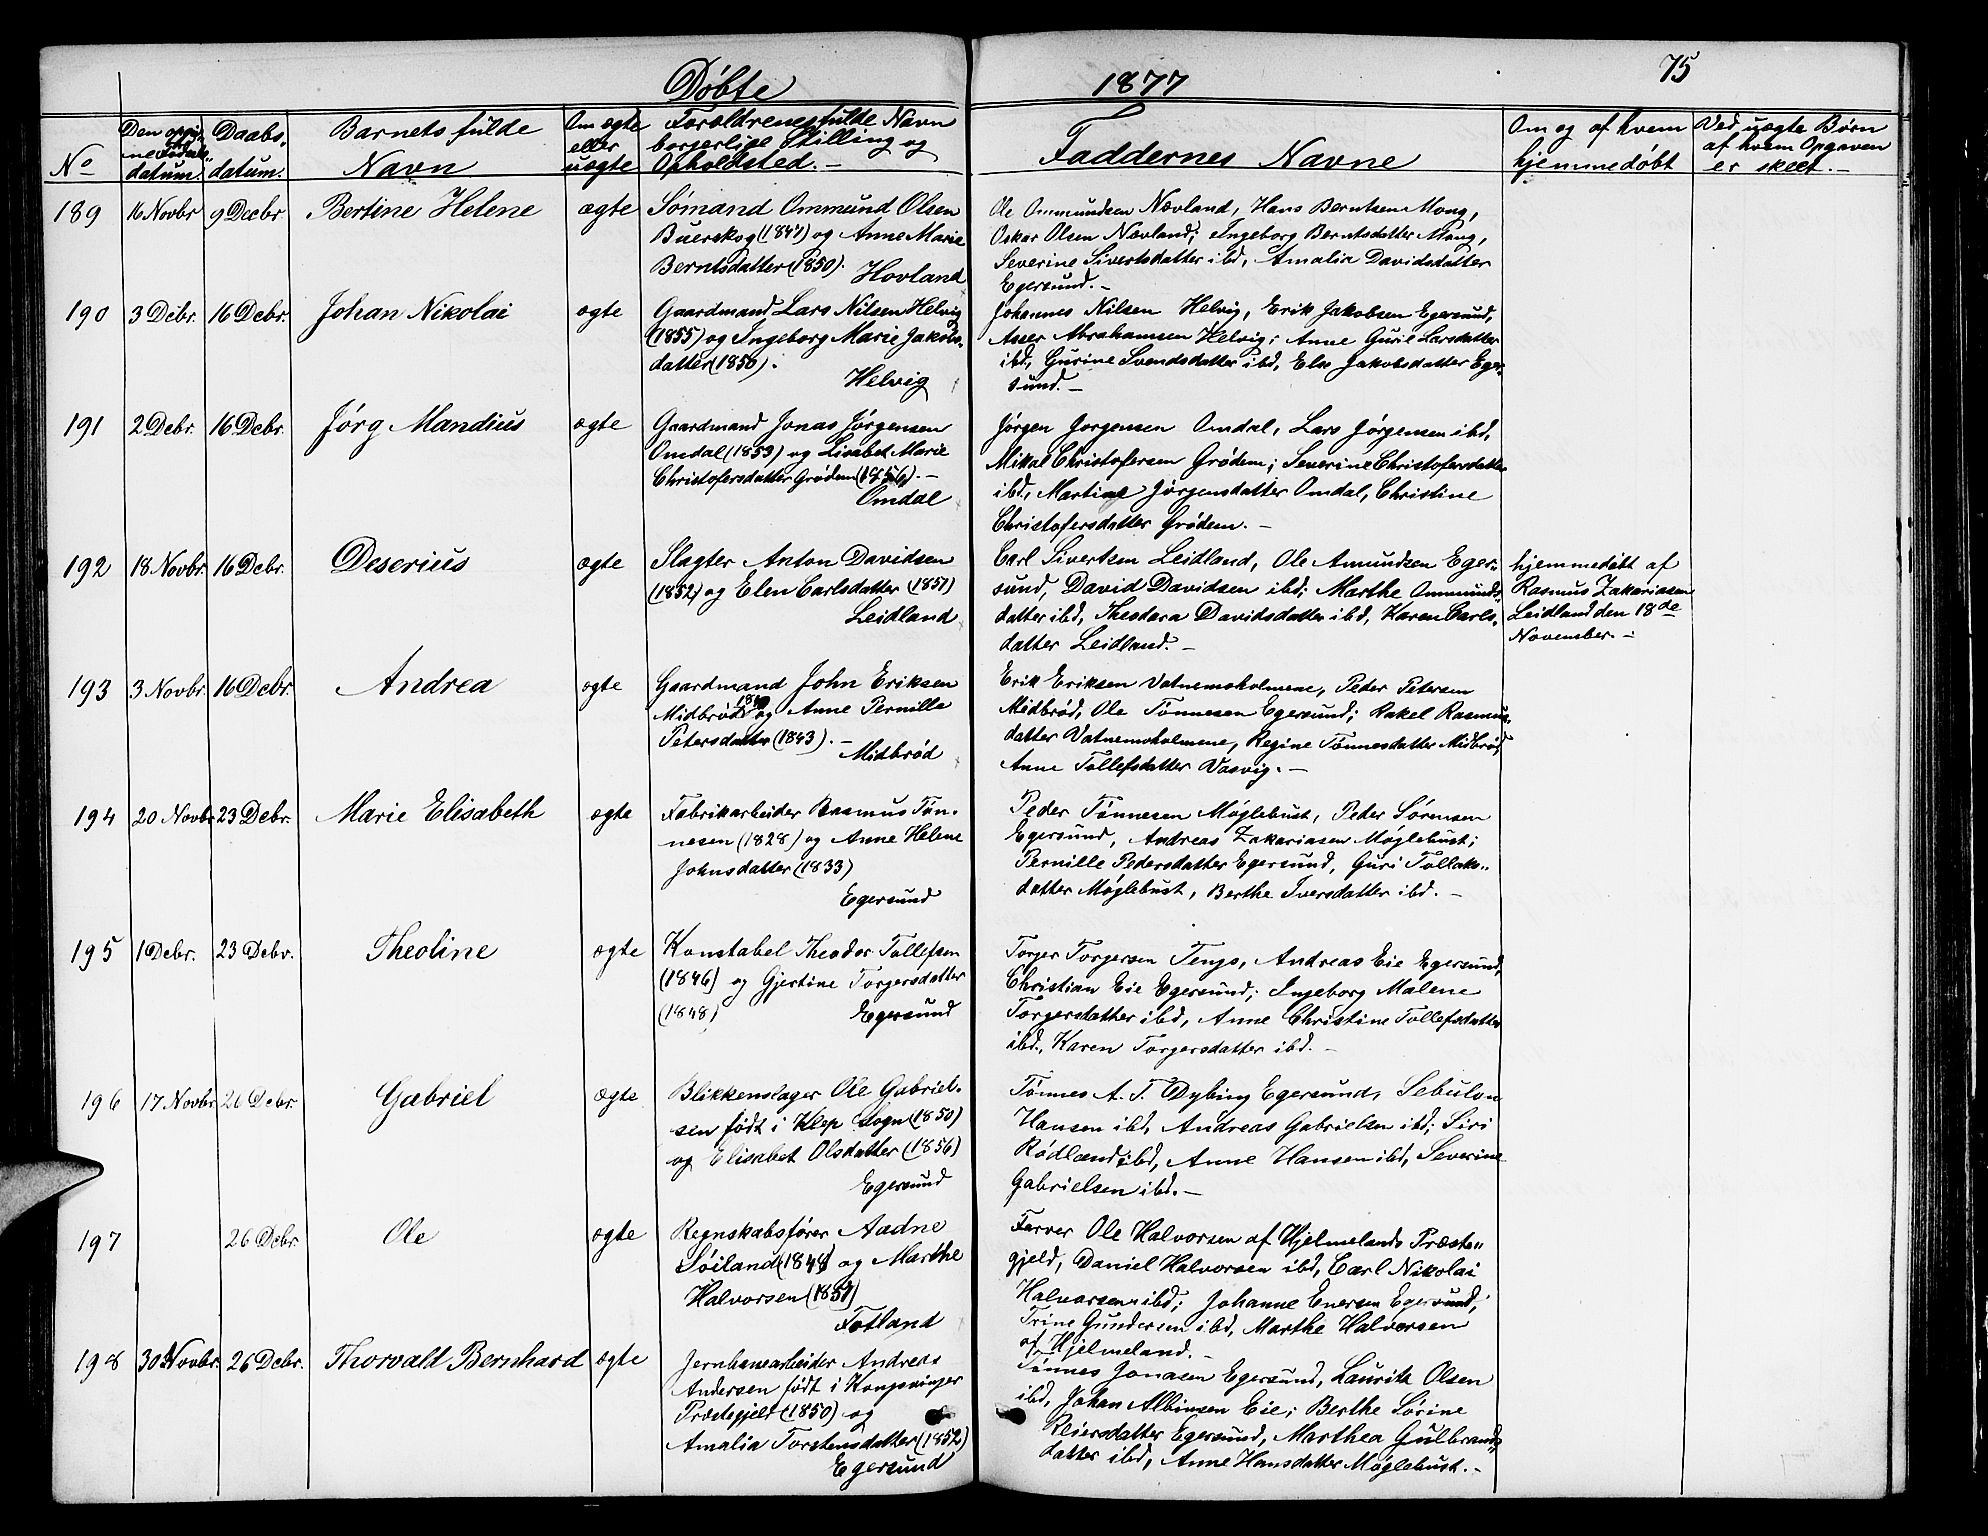 Døbte
1877
75
No
Den opgivne Fødselsdatum.
Daabsdatum.
Barnets fulde Navn
Om ægte eller uægte
Forældrenes fulde Navn borgerlige Stilling og Opholdsted.
Faddernes Navne
Om og af hvem hjemmedøbt
Ved uægte Børn af hvem Opgaven er skeet.
189 16 Novbr 9 Decbr. Bertine Helene ægte
Sømand Ommund Olsen
Buerskog (1847) og Anne Marie
Berntsdatter (1850).
Hovland
Ole Ommundsen Nævland, Hans Berntsen Mong,
Oskar Olsen Nævland; Ingeborg Berntsdatter Mong,
Severine Sivertsdatter ibd, Amalia Davidsdatter
Egersund.
190 3 Debr. 16 Debr. Johan Nikolai ægte
Gaardmand Lars Nilsen Helvig
(1855) og Ingeborg Marie Jakobs-
datter (1850).
Helvig
Johannes Nilsen Helvig, Erik Jakobsen Egersund,
Asser Abrahamsen Helvig; Anne Gurie Larsdatter
ibd, Gurine Svendsdatter ibd, Else Jakobsdatter Eger-
sund.
191 2 Debr. 16 Debr. Jørg Mandius ægte
Gaardmand Jonas Jørgensen
Omdal (1853) og Lisabet Marie
Christofersdatter Grødem (1856).
Omdal
Jørgen Jorgensen Omdal, Lars Jørgensen ibd,
Mikal Christofersen Grødem; Severine Christofersdatter
ibd, Martine Jørgensdatter Omdal, Christine
Christofersdatter Grødem.
192 18 Novbr. 16 Debr. Deserius ægte
Slagter Anton Davidsen
(1852) og Elen Carlsdatter (1851)
Leidland
Carl Sivertsen Leidland, Ole Amundsen Eger-
sund, David Davidsen ibd; Marthe Ommunds-
datter ibd, Theodara Davidsdatter ibd, Karen Carls-
datter Leidland.
hjemmedøbt af
Rasmus Zakariasen
Leidland den 18de
November.
193 3 Novbr. 16 Debr. Andrea ægte
Gaardmand John Eriksen
Midbrød og Anne Pernille
Petersdatter (1843).
Midbrød
Erik Eriksen Vatnemoholmene, Peder Petersen
Midbrød, Ole Tønnesen Egersund; Rakel Rasmus-
datter Vatnemoholmene, Regine Tønnesdatter Midbrød,
Anne Tollefsdatter Vasvig.
194 20 Novbr 23 Debr. Marie Elisabeth ægte
Fabrikarbeider Rasmus Tøn-
nesen (1828) og Anne Helene
Johnsdatter (1833)
Egersund
Peder Tønnesen Møglebust, Peder Sørensen
Egersund, Andreas Zakariasen Møglebust;
Pernille Pedersdatter Egersund, Guri Tollaks-
datter Møglebust, Berthe Iversdatter ibd.
195 1 Debr. 23 Debr. Theoline ægte
Konstabel Theodor Tollefsen
(1846) og Gjertine Torgersdatter
(1848)
Egersund
Torger Torgersen Tengs, Andreas Eie Egersund,
Christian Eie Egersund; Ingeborg Malene
Torgersdatter ibd, Anne Christine Tollefsdatter
ibd., Karen Torgersdatter ibd.
196 17 Novbr 26 Debr. Gabriel ægte
Blikkenslager Ole Gabriel-
sen født i Klep Sogn (1850)
og Elisabet Olsdatter (1856)
Egersund
Tønnes A. T. Dybing Egersund, Sebulon
Hansen ibd, Andreas Gabrielsen ibd; Siri
Rødland ibd, Anne Hansen ibd, Severine
Gabrielsen ibd.
197 26 Debr. Ole ægte
Regnskabsfører Aadne
Søiland (1848) og Marthe
Halvorsen (1851)
Fotland
Farver Ole Halvorsen af Hjelmelands Præste-
gjeld, Daniel Halvorsen ibd, Carl Nikolai
Halvorsen ibd; Johanne Enersen Egersund,
Trine Gundersen ibd, Marthe Halvorsen
af Hjelmeland.
198 30 Novbr. 26 Debr. Thorvald Bernhard ægte
Jernbanearbeider Andreas
Andersen født i Kongsvinger
Præstegjeld (1850) og
Amalia Torstensdatter (1852)
Egersund
Tønnes Jonasen Egersund, Lauritz Olsen
ibd, Johan Albinsen Eie; Berthe Sørine
Reiersdatter Egersund, Marthea Gulbrands-
datter ibd, Anne Hansdatter Møglebust.